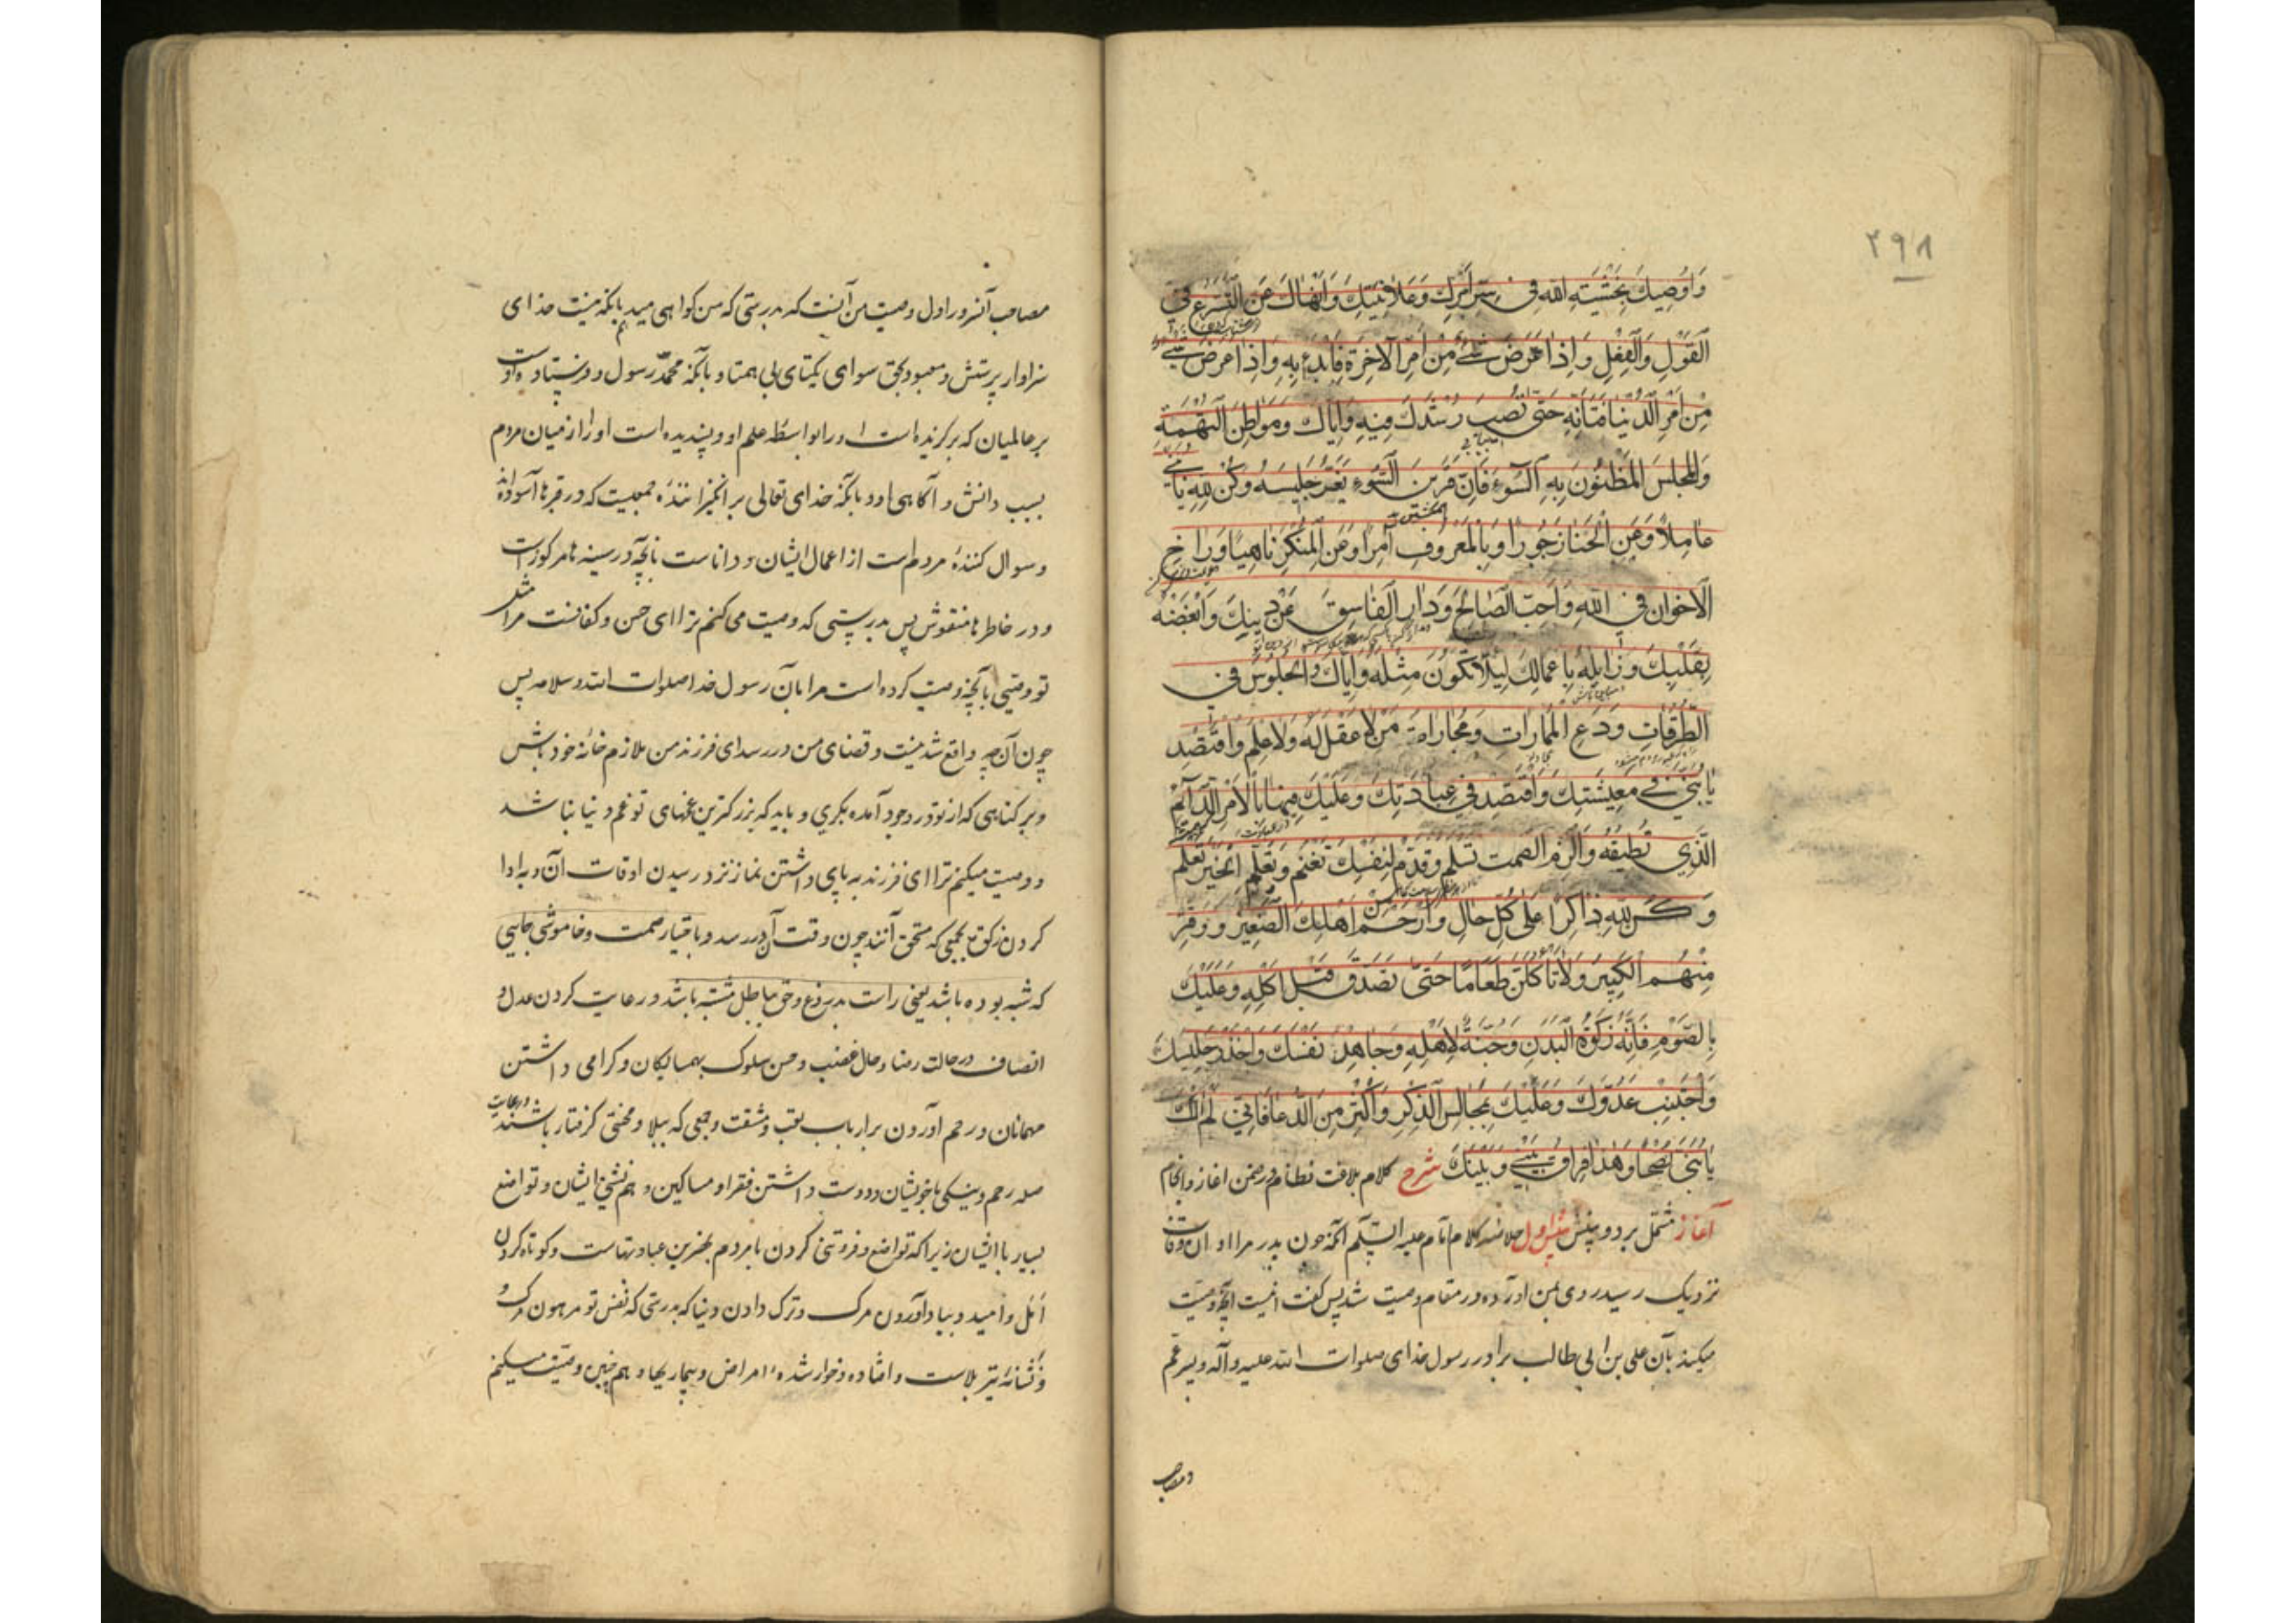 ۲۹۸
وَاُوصِيكَ بِخَشْيَةِ اللهِ فِي سِرِّ اَمْرِكَ وَعَلَانِيَتِكَ وَاَنْهَاكَ عَنِ التَّسَرُّعِ فِي
الْقَوْلِ وَالْفِعْلِ وَاِذَا عَرَضَ شَيْءٌ مِنْ اَمْرِ الْآخِرَةِ فَابْدَءْ بِهِ وَاِذَا عَرَضَ شَيْءٌ
مِنْ اَمْرِ الدُّنْيَا فَتَاَنَّهِ حَتّى تُصِيبَ رُشْدَكَ فِيهِ وَاِيَّاكَ وَمَوَاطِنَ التُّهَمَةِ
وَالْمَجْلِسَ الْمَظْنُونَ بِهِ السُّوءَ فَاِنَّ قَرِينَ السُّوءِ يَغُرُّ جَلِيسَهُ وَكُنْ لِلّهِ يَا بُنَيَّ
عَامِلاً وَعَنِ الْخَنَا زَجُورًا وَبِالْمَعْرُوفِ آمِرًا وَعَنِ الْمُنْكَرِ نَاهِيًا وَرَاخِ
الْاِخْوَانَ فِي اللهِ وَاَحِبَّ الصَّالِحَ وَدَارِ الْفَاسِقَ عَنْ دِينِكَ وَاَبْغِضْهُ
بِقَلْبِكَ وَزَايِلْهُ بِاَعْمَالِكَ لِئَلَّا تَكُونَ مِثْلَهُ وَاِيَّاكَ وَالْجُلُوسَ فِي
الطُّرُقَاتِ وَدَعِ الْمُمَارَاتِ وَمُجَارَاةَ مَنْ لَا عَقْلَ لَهُ وَلَا عِلْمَ وَاقْتَصِدْ
يَا بُنَيَّ فِي مَعِيشَتِكَ وَاقْتَصِدْ فِي عِبَادَتِكَ وَعَلَيْكَ فِيهَا بِالْاَمْرِ الدَّائِمِ
الَّذِي تُطِيقُهُ وَالْزَمِ الصَّمْتَ تَسْلَمْ وَقَدِّمْ لِنَفْسِكَ تَغْنَمْ وَتَعَلَّمِ الْخَيْرَ تَعْلَمْ
وَكُنْ لِلّهِ ذَاكِرًا عَلَى كُلِّ حَالٍ وَارْحَمْ مِنْ اَهْلِكَ الصَّغِيرَ وَوَقِّرْ
مِنْهُمُ الْكَبِيرَ وَلَا تَاْكُلَنَّ طَعَامًا حَتَّى تَصَدَّقَ قَبْلَ اَكْلِهِ وَعَلَيْكَ
بِالصَّوْمِ فَاِنَّهُ زَكَوةُ الْبَدَنِ وَجُنَّةٌ لِاَهْلِهِ وَجَاهِدْ نَفْسَكَ وَاحْذَرْ جَلِيسَكَ
وَاجْتَنِبْ عَدُوَّكَ وَعَلَيْكَ بِمَجَالِسِ الذِّكْرِ وَاَكْثِرْ مِنَ الدُّعَا فَاِنّي لَمْ آلُكَ
يَا بُنَيَّ نُصْحًا وَهَذَا فِرَاقُ بَيْنِي وَبَيْنَكَ شرح کلام بلاغت نظام در ضمن اغاز و انجام
آغاز مشتمل بر دو بینش بینش اول خلاصه کلام امام علیه السلام آنکه چون پدر مرا اوان وفات
نزدیک رسید روی بمن اورده در مقام وصیت شد پس گفت اینست آنچه وصیت
میکند بآن علی بن ابی طالب برادر رسول خدای صلوات الله علیه وآله و پسر عم
و مصاحب
مصاحب آنسرور اول وصیت من آنست که بدرستی که من گواهی میدهم بآنکه نیست خدای
سزاوار پرستش و معبود بحق سوای یکتای بی همتا و بآنکه محمد رسول و فرستاده اوست
بر عالمیان که برگزیده است او را بواسطه علم او و پسندیده است او را از میان مردم
بسبب دانش و آگاهی او و بآنکه خدای تعالی برانگیزاننده جمعیست که در قبرها آسوده‌اند
و سوال کننده مردمست از اعمال ایشان و داناست بآنچه در سینه‌ها مرکوزست
و در خاطرها منقوش پس بدرستی که وصیت می کنم ترا ای حسن و کفافست مرا مثل
تو وصیی بآنچه وصیت کرده است مرا بآن رسول خدا صلوات الله و سلامه پس
چون آن واقع شدنیست و قضای من در رسد ای فرزند من ملازم خانه خود باش
و بر گناهی که از تو در وجود آمده بگری و باید که بزرگترین غمهای تو غم دنیا نباشد
و وصیت میکنم ترا ای فرزند به پای داشتن نماز نزد رسیدن اوقات آن و به ادا
کردن زکوة بجمعی که مستحق آنند چون وقت آن در رسد و باختیار صمت و خاموشی جایی
که شبه بوده باشد یعنی راست بدروغ و حق بباطل مشتبه باشد و رعایت کردن عدل و
انصاف در حالت رضا و حال غضب و حسن سلوک بهمسایگان و گرامی داشتن
مهمانان و رحم آوردن بر ارباب تعب و مشقت و جمعی که ببلا و محنتی گرفتار باشند و رعایت
صله رحم و نیکی با خویشان و دوست داشتن فقرا و مساکین و هم نشینی ایشان و تواضع
بسیار با ایشان زیرا که تواضع و فروتنی کردن با مردم بهترین عبادتهاست و کوتاه کردن
اَمَل و امید و بیاد آوردن مرگ و ترک دادن دنیا که بدرستی که نفس تو مرهون مرگ و
و نشانه تیر بلاست و افتاده و خوار شده امراض و بیماریها و هم چنین وصیت میکنم